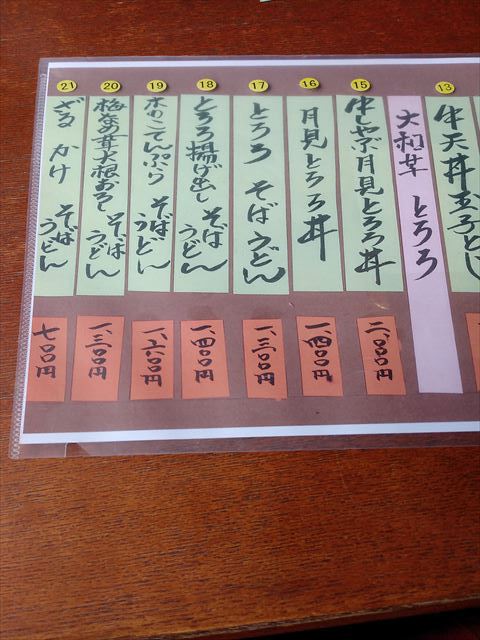 13
牛天丼玉子とじ
大和芋 とろろ
15
牛しゃぶ月見とろろ丼
二、〇〇〇円
16
月見とろろ丼
一、四〇〇円
17
とろろ そばうどん
一、三〇〇円
18
とろろ揚げ出し そば うどん
一、四〇〇円
19
木のこてんぷら そば うどん
一、六〇〇円
20
梅なめ茸大根おろし そば うどん
一、三〇〇円
21
ざる かけ そば うどん
七〇〇円